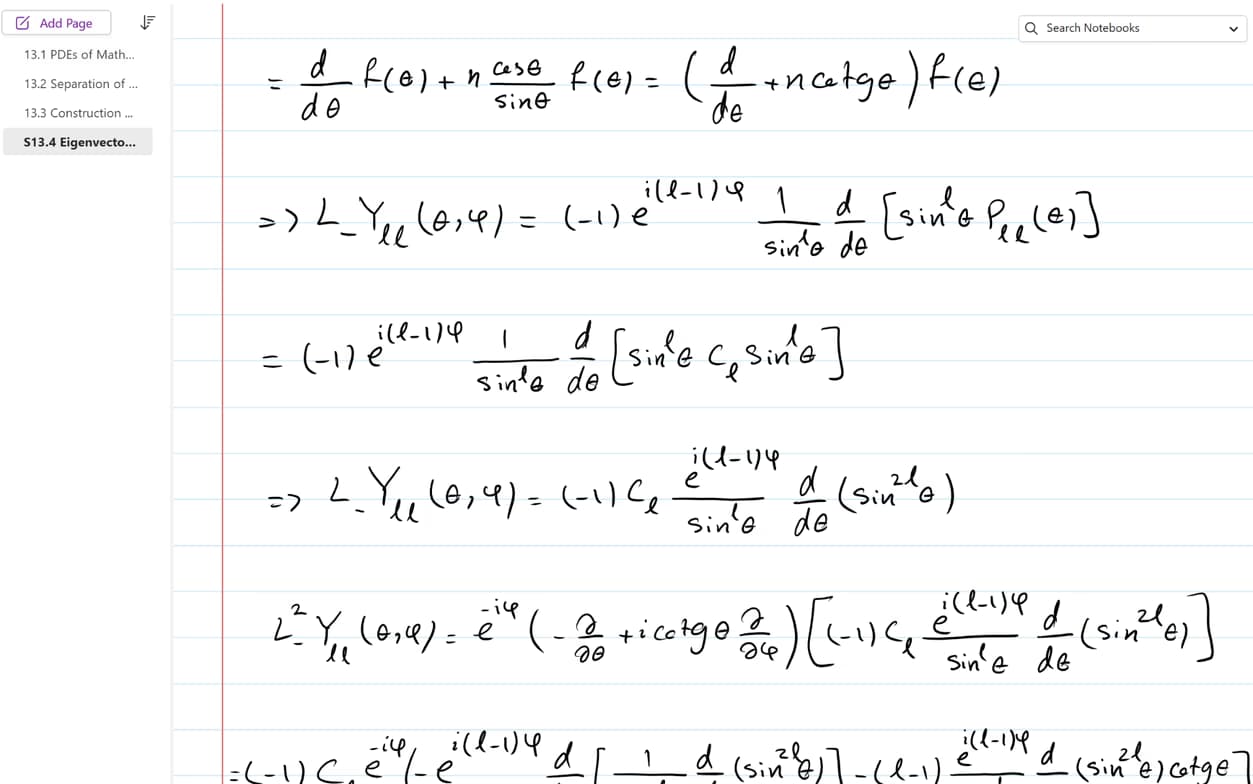 Add Page
Search Notebooks
13.1 PDEs of Math...
13.2 Separation of ...
13.3 Construction ...
S13.4 Eigenvecto...
= d/dθ f(θ) + n cosθ/sinθ f(θ) = (d/dθ + n cotgθ) f(θ)
=> L_- Y_ll(θ,φ) = (-1) e^{i(l-1)φ} 1/sin^lθ d/dθ [sin^lθ P_ll(θ)]
= (-1) e^{i(l-1)φ} 1/sin^lθ d/dθ [sin^lθ C_l sin^lθ]
=> L_- Y_ll(θ,φ) = (-1) C_l e^{i(l-1)φ}/sin^lθ d/dθ (sin^{2l}θ)
L_-^2 Y_ll(θ,φ) = e^{-iφ} (-∂/∂θ + i cotgθ ∂/∂φ) [(-1) C_l e^{i(l-1)φ}/sin^lθ d/dθ (sin^{2l}θ)]
= (-1) C_l e^{-iφ} (-e^{i(l-1)φ} d [ 1 d (sin^{2l}θ)] - (l-1) e^{i(l-1)φ} d (sin^{2l}θ) cotgθ